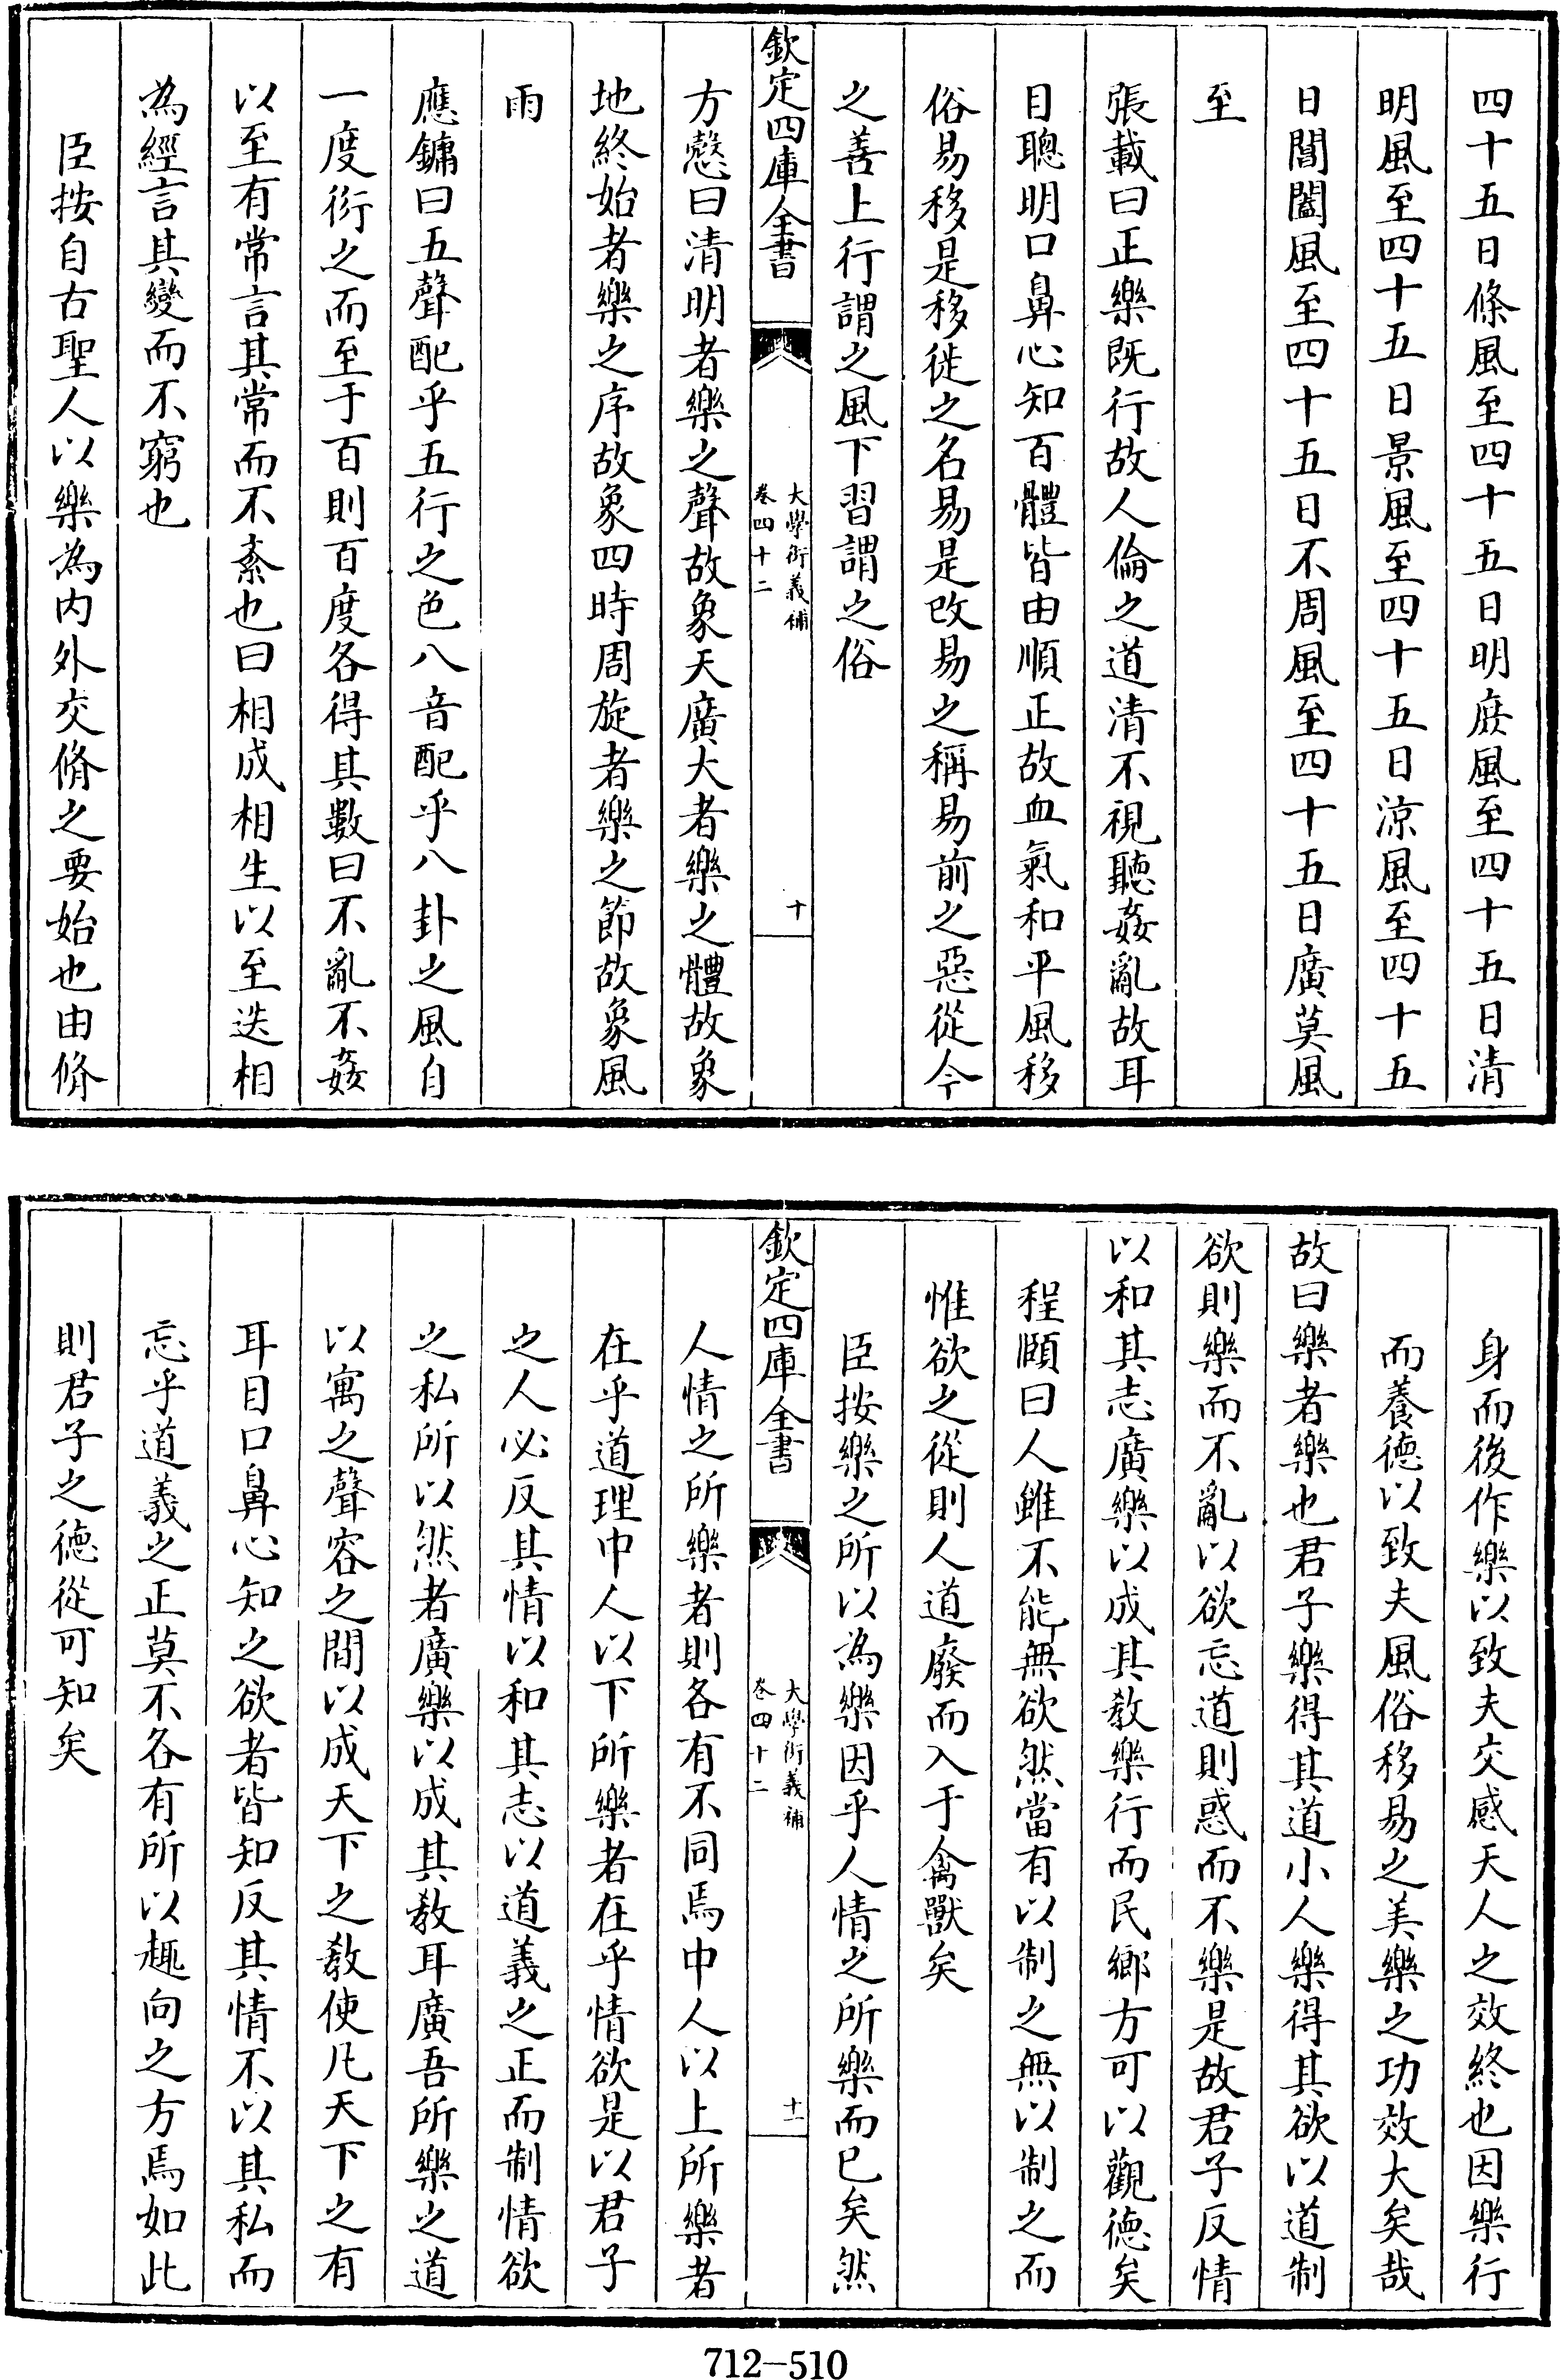 四十五日條風至四十五日明庶風至四十五日清
明風至四十五日景風至四十五日涼風至四十五
日閶闔風至四十五日不周風至四十五日廣莫風
至
張載曰正樂既行故人倫之道清不視聽姦亂故耳
目聰明口鼻心知百體皆由順正故血氣和平風移
俗易移是移徙之名易是改易之稱易前之惡從今
之善上行謂之風下習謂之俗
欽定四庫全書
大學衍義補
卷四十二
十
方慤曰清明者樂之聲故象天廣大者樂之體故象
地終始者樂之序故象四時周旋者樂之節故象風
雨
應鏞曰五聲配乎五行之色八音配乎八卦之風自
一度衍之而至于百則百度各得其數曰不亂不姦
以至有常言其常而不紊也曰相成相生以至迭相
為經言其變而不窮也
臣按自古聖人以樂為內外交脩之要始也由脩
身而後作樂以致夫交感天人之效終也因樂行
而養德以致夫風俗移易之美樂之功效大矣哉
故曰樂者樂也君子樂得其道小人樂得其欲以道制
欲則樂而不亂以欲忘道則惑而不樂是故君子反情
以和其志廣樂以成其教樂行而民鄉方可以觀德矣
程頤曰人雖不能無欲然當有以制之無以制之而
惟欲之從則人道廢而入于禽獸矣
臣按樂之所以為樂因乎人情之所樂而已矣然
欽定四庫全書
大學衍義補
卷四十二
十一
人情之所樂者則各有不同焉中人以上所樂者
在乎道理中人以下所樂者在乎情欲是以君子
之人必反其情以和其志以道義之正而制情欲
之私所以然者廣樂以成其教耳廣吾所樂之道
以寓之聲容之間以成天下之教使凡天下之有
耳目口鼻心知之欲者皆知反其情不以其私而
忘乎道義之正莫不各有所以趣向之方焉如此
則君子之德從可知矣
712-510